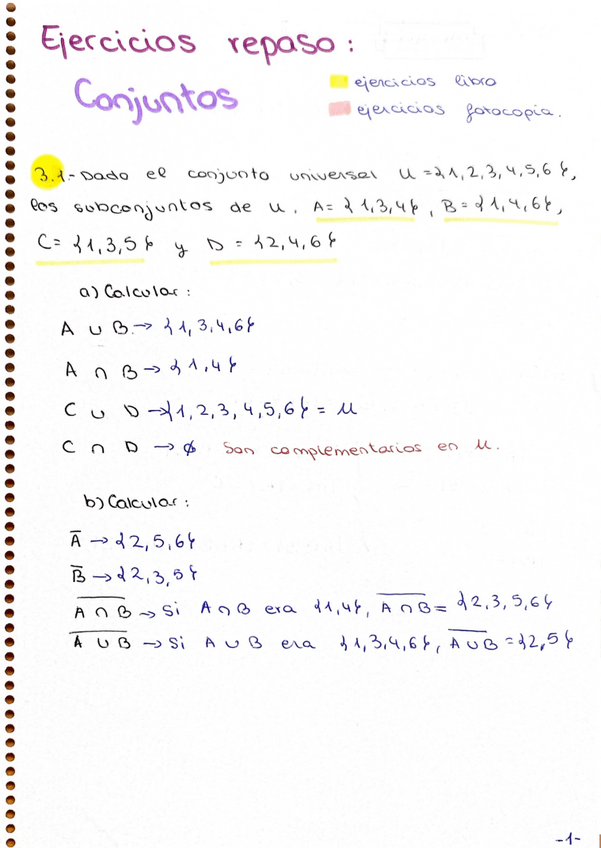 Ejercicios repaso:
Conjuntos
ejercicios libro
ejercicios fotocopia.
3.1- Dado el conjunto universal U = {1, 2, 3, 4, 5, 6},
los subconjuntos de U. A = {1, 3, 4}, B = {1, 4, 6},
C = {1, 3, 5} y D = {2, 4, 6}
a) Calcular:
A ∪ B → {1, 3, 4, 6}
A ∩ B → {1, 4}
C ∪ D → {1, 2, 3, 4, 5, 6} = U
C ∩ D → ∅ Son complementarios en U.
b) Calcular:
A̅ → {2, 5, 6}
B̅ → {2, 3, 5}
A̅ ̅∩̅ ̅B̅ → Si A ∩ B era {1, 4}, A̅ ̅∩̅ ̅B̅ = {2, 3, 5, 6}
A̅ ̅∪̅ ̅B̅ → Si A ∪ B era {1, 3, 4, 6}, A̅ ̅∪̅ ̅B̅ = {2, 5}
-1-